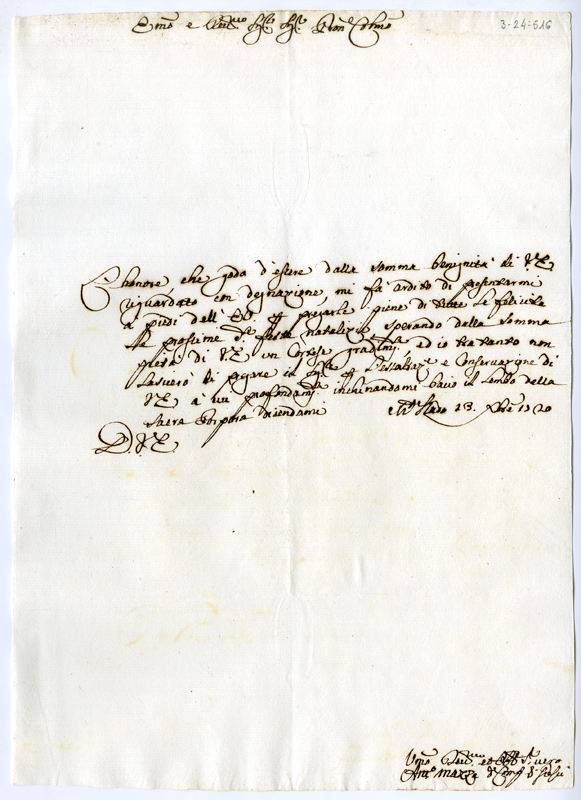 3-24-516
Em̃o e Rev.mo Sig.r Sig.r Pron. Colmo
L'honore, che godo d'essere dalla somma benignità di V.E.
riguardato con degnazione, mi fà ardito di presentarmi
a piedi dell' E.V. per pregarle piene di tutte le felicità
le prossime S.te feste natalizie sperando dalla somma
pietà di V.E. un Cortese gradim.to, ed io tratanto non
lascierò di pregare il Sig.re per l'essaltaz.e e Conservazione di
V.E. a cui profondam.te inchinandomi bacio il lembo della
Sacra Porpora dicendomi
23. Xbre 1720
D. V.E.
Um̃o Dev.mo ed Obb.mo Ser. vero
Ant.o